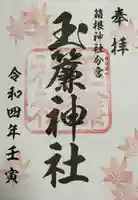 奉拝
箱根神社分宮
玉簾神社
令和四年壬寅